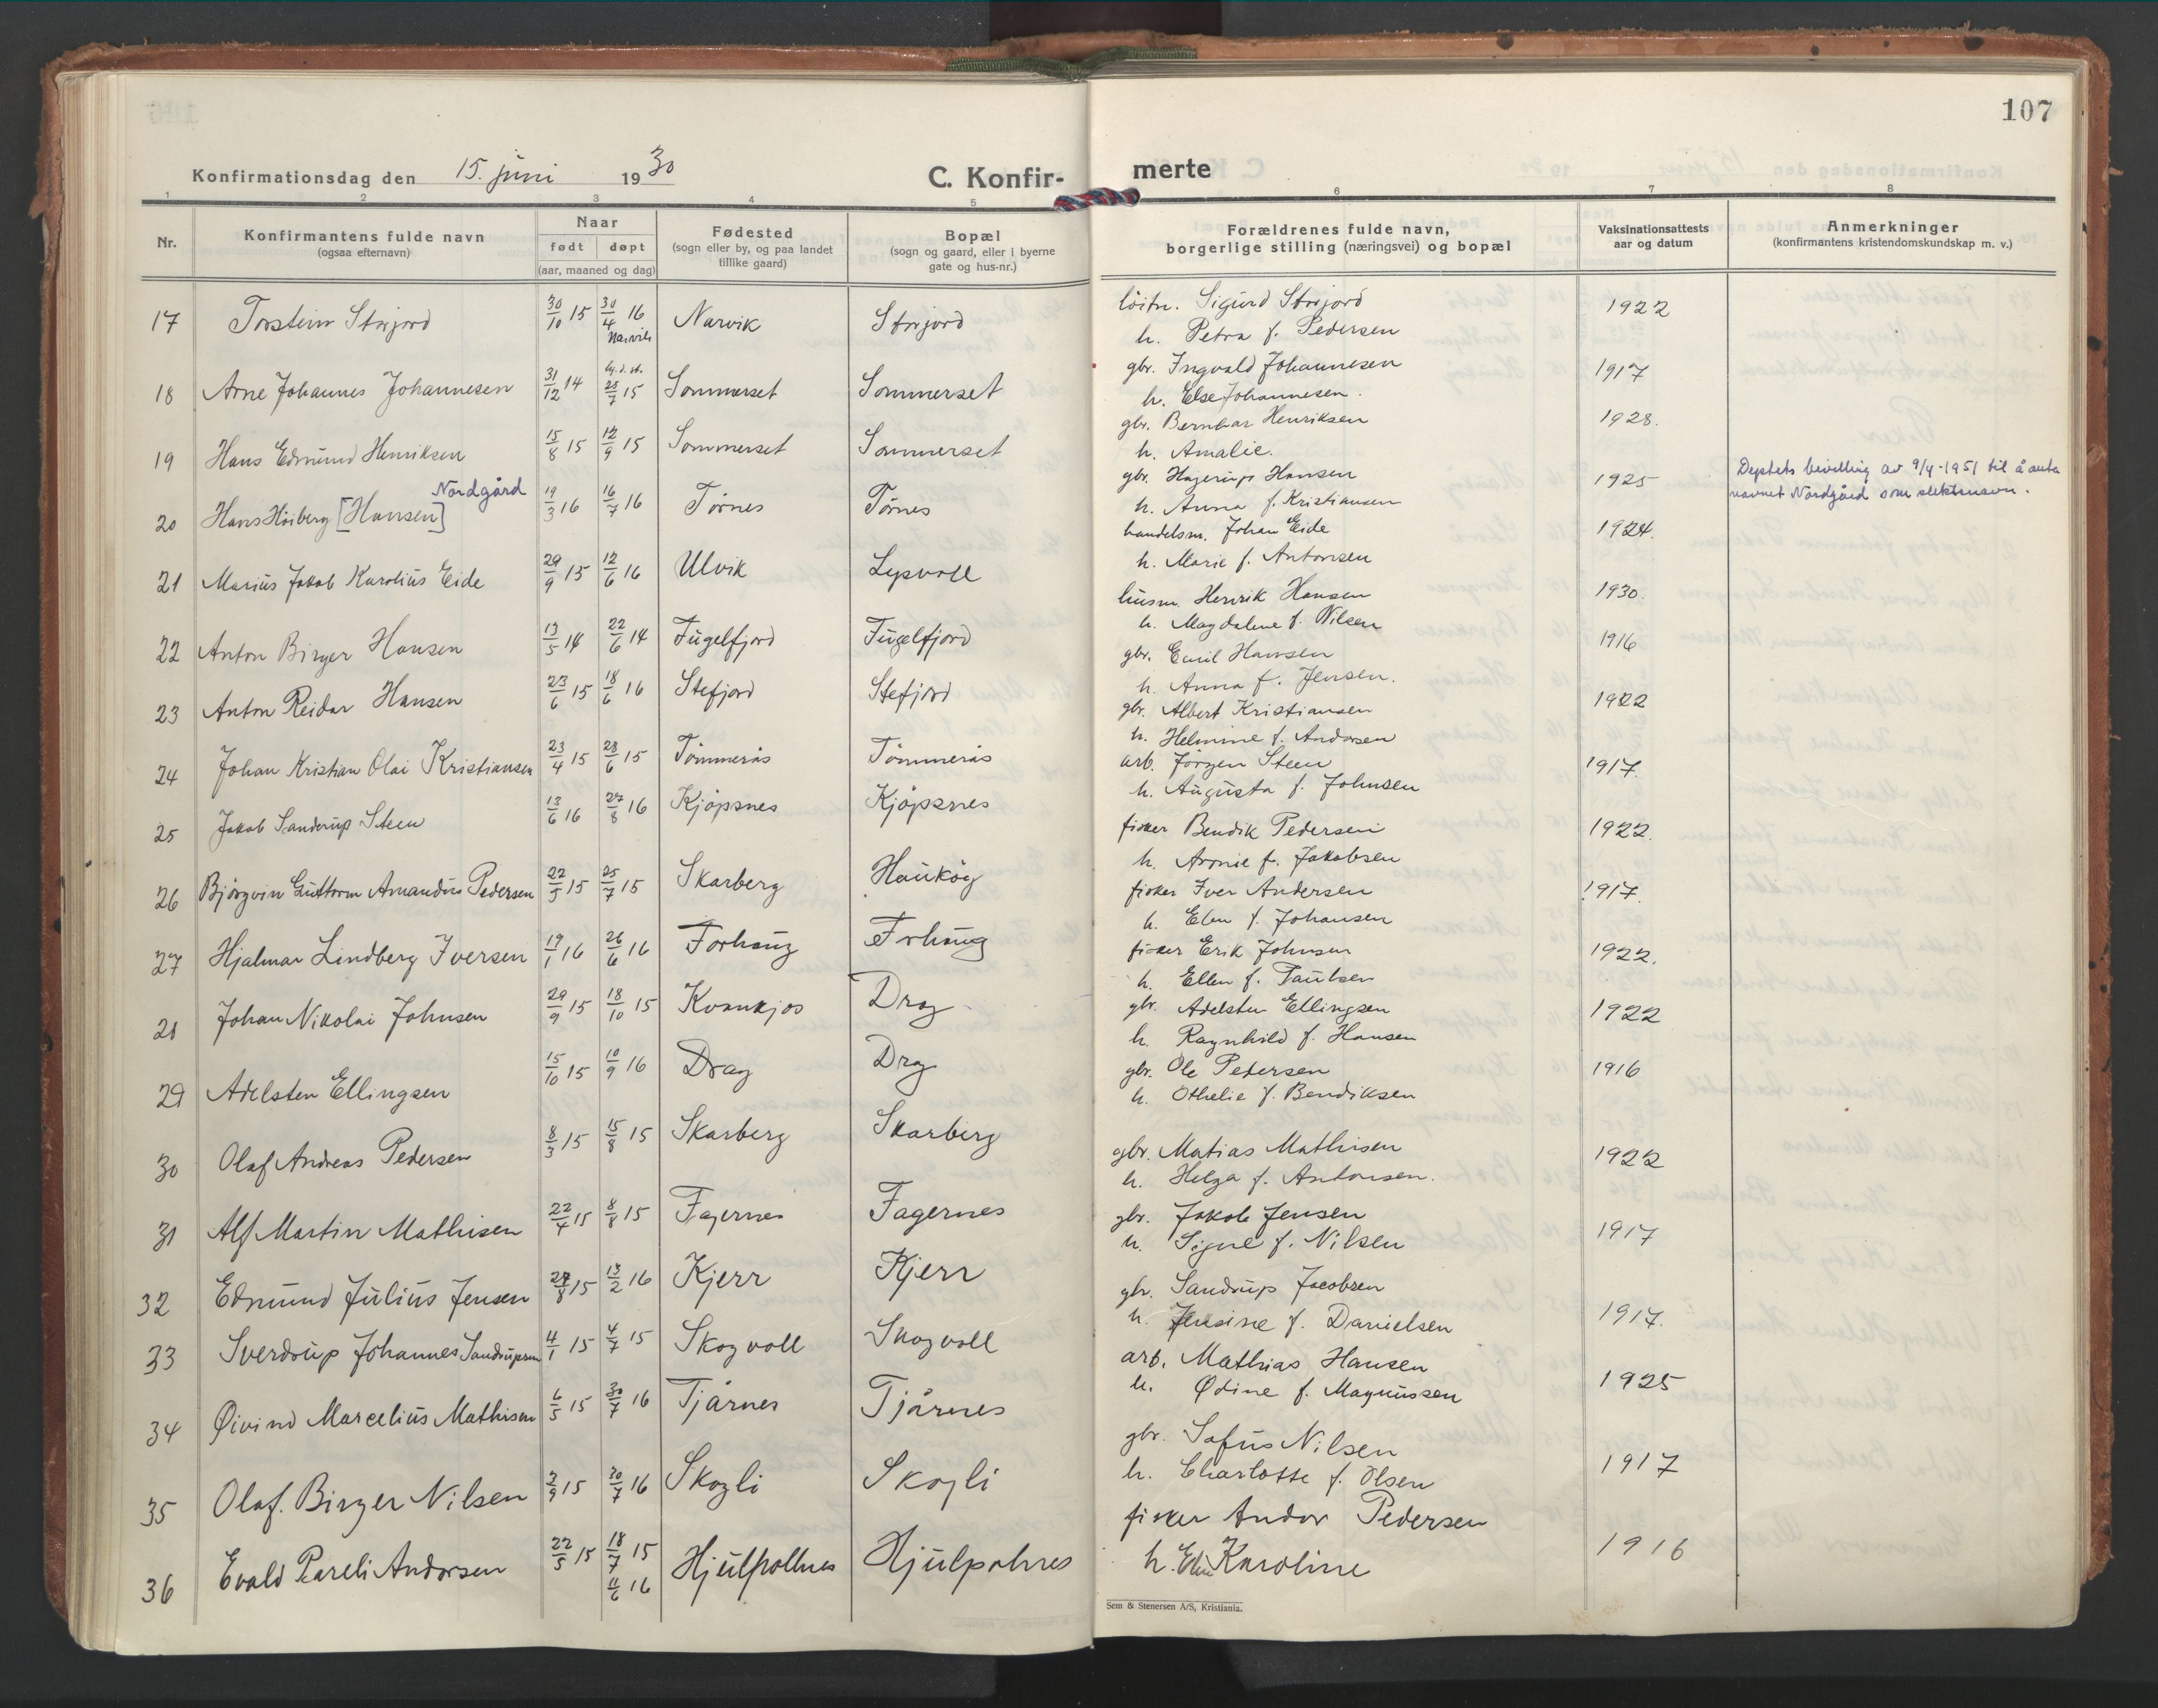 107
Konfirmationsdag den 15. juni 1930
C. Konfir-
merte
1 2 3 4 5 6 7 8
Nr.
Konfirmantens fulde navn
(ogsaa efternavn)
Naar
født døpt
(aar, maaned og dag)
Fødested
(sogn eller by, og paa landet
tillike gaard)
Bopæl
(sogn og gaard, eller i byerne
gate og hus-nr.)
Forældrenes fulde navn,
borgerlige stilling (næringsvei) og bopæl
Vaksinationsattests
aar og datum
Anmerkninger
(konfirmantens kristendomskundskap m. v.)
17 Torstein Storjord 30/10 15 30/4 16 Narvik Narvik Storjord løitn. Sigurd Storjord 1922
h. Petra f. Pedersen
18 Arne Johannes Johannesen 31/12 14 hj.d. 28/7 15 Sommerset Sommerset gbr. Ingvald Johannesen 1917
h. Else Johannesen.
19 Hans Edmund Henriksen 15/8 15 12/9 15 Sommerset Sommerset gbr. Bernhar Henriksen 1928.
h. Amalie.
20 Hans Höiberg [Hansen] Nordgård 19/3 16 16/7 16 Tørnes Tørnes gbr. Hagerup Hansen 1925
h. Anna f. Kristiansen
Deptets bevilling av 9/4-1951 til å anta
navnet Nordgård som slektsnavn.
21 Marius Jakob Karolius Eide 29/9 15 12/6 16 Ulvik Lysvoll handelsm. Johan Eide 1924.
h. Marie f. Antonsen
22 Anton Birger Hansen 13/5 14 22/6 14 Fugelfjord Fugelfjord husm. Henrik Hansen 1930.
h. Magdalene f. Nilsen
23 Anton Reidar Hansen 23/6 15 18/6 16 Stefjord Stefjord gbr. Emil Hansen 1916
h. Anna f. Jensen.
24 Johan Kristian Olai Kristiansen 23/4 15 28/6 15 Tömmerås Tömmerås gbr. Albert Kristiansen 1922
h. Helmine f. Andorsen
25 Jakob Sanderup Steen 13/6 16 27/8 16 Kjöpsnes Kjöpsnes arb. Jörgen Steen 1917.
h. Augusta f. Johnsen
26 Björgvin Guttorm Amandus Pedersen 22/5 15 25/7 15 Skarberg Haukøy fisker Bendik Pedersen 1922.
h. Aronie f. Jakobsen
27 Hjalmar Lindberg Iversen 19/1 16 26/6 16 Forhaug Forhaug fisker Iver Andersen 1917.
h. Elen f. Johansen
28 Johan Nikolai Johnsen 29/9 15 18/10 15 Kvankjos Drag fisker Erik Johnsen 1922.
h. Ellen f. Paulsen
29 Adelsten Ellingsen 15/10 15 10/9 16 Drag Drag gbr. Adelsten Ellingsen 1922
h. Ragnhild f. Hansen
30 Olaf Andreas Pedersen 8/3 15 15/8 15 Skarberg Skarberg gbr. Ole Petersen 1916
h. Othelie f. Bendiksen
31 Alf Martin Mathisen 22/4 15 8/8 15 Fagernes Fagernes gbr. Matias Mathisen 1922
h. Helga f. Antonsen.
32 Edmund Julius Jensen 27/8 15 13/2 16 Kjerr Kjerr gbr. Jakob Jensen 1917
h. Signe f. Nilsen
33 Sverdrup Johannes Sandrupsen 4/1 15 4/7 15 Skogvoll Skogvoll gbr. Sandrup Jacobsen 1917.
h. Jensine f. Danielsen
34 Øivind Marcelius Mathisen 6/5 15 30/7 16 Tjårnes Tjårnes arb. Mathias Hansen 1925
h. Ødine f. Magnussen
35 Olaf. Birger Nilsen 2/9 15 30/7 16 Skogli Skogli gbr. Sofus Nilsen 1917
h. Charlotte f. Olsen
36 Evald Pareli Andorsen 22/5 15 18/7 15 11/6 16 Hjulpollnes Hjulpolnes fisker Andor Pedersen 1916
h. Elen Karoline
Sem & Stenersen A/S, Kristiania.